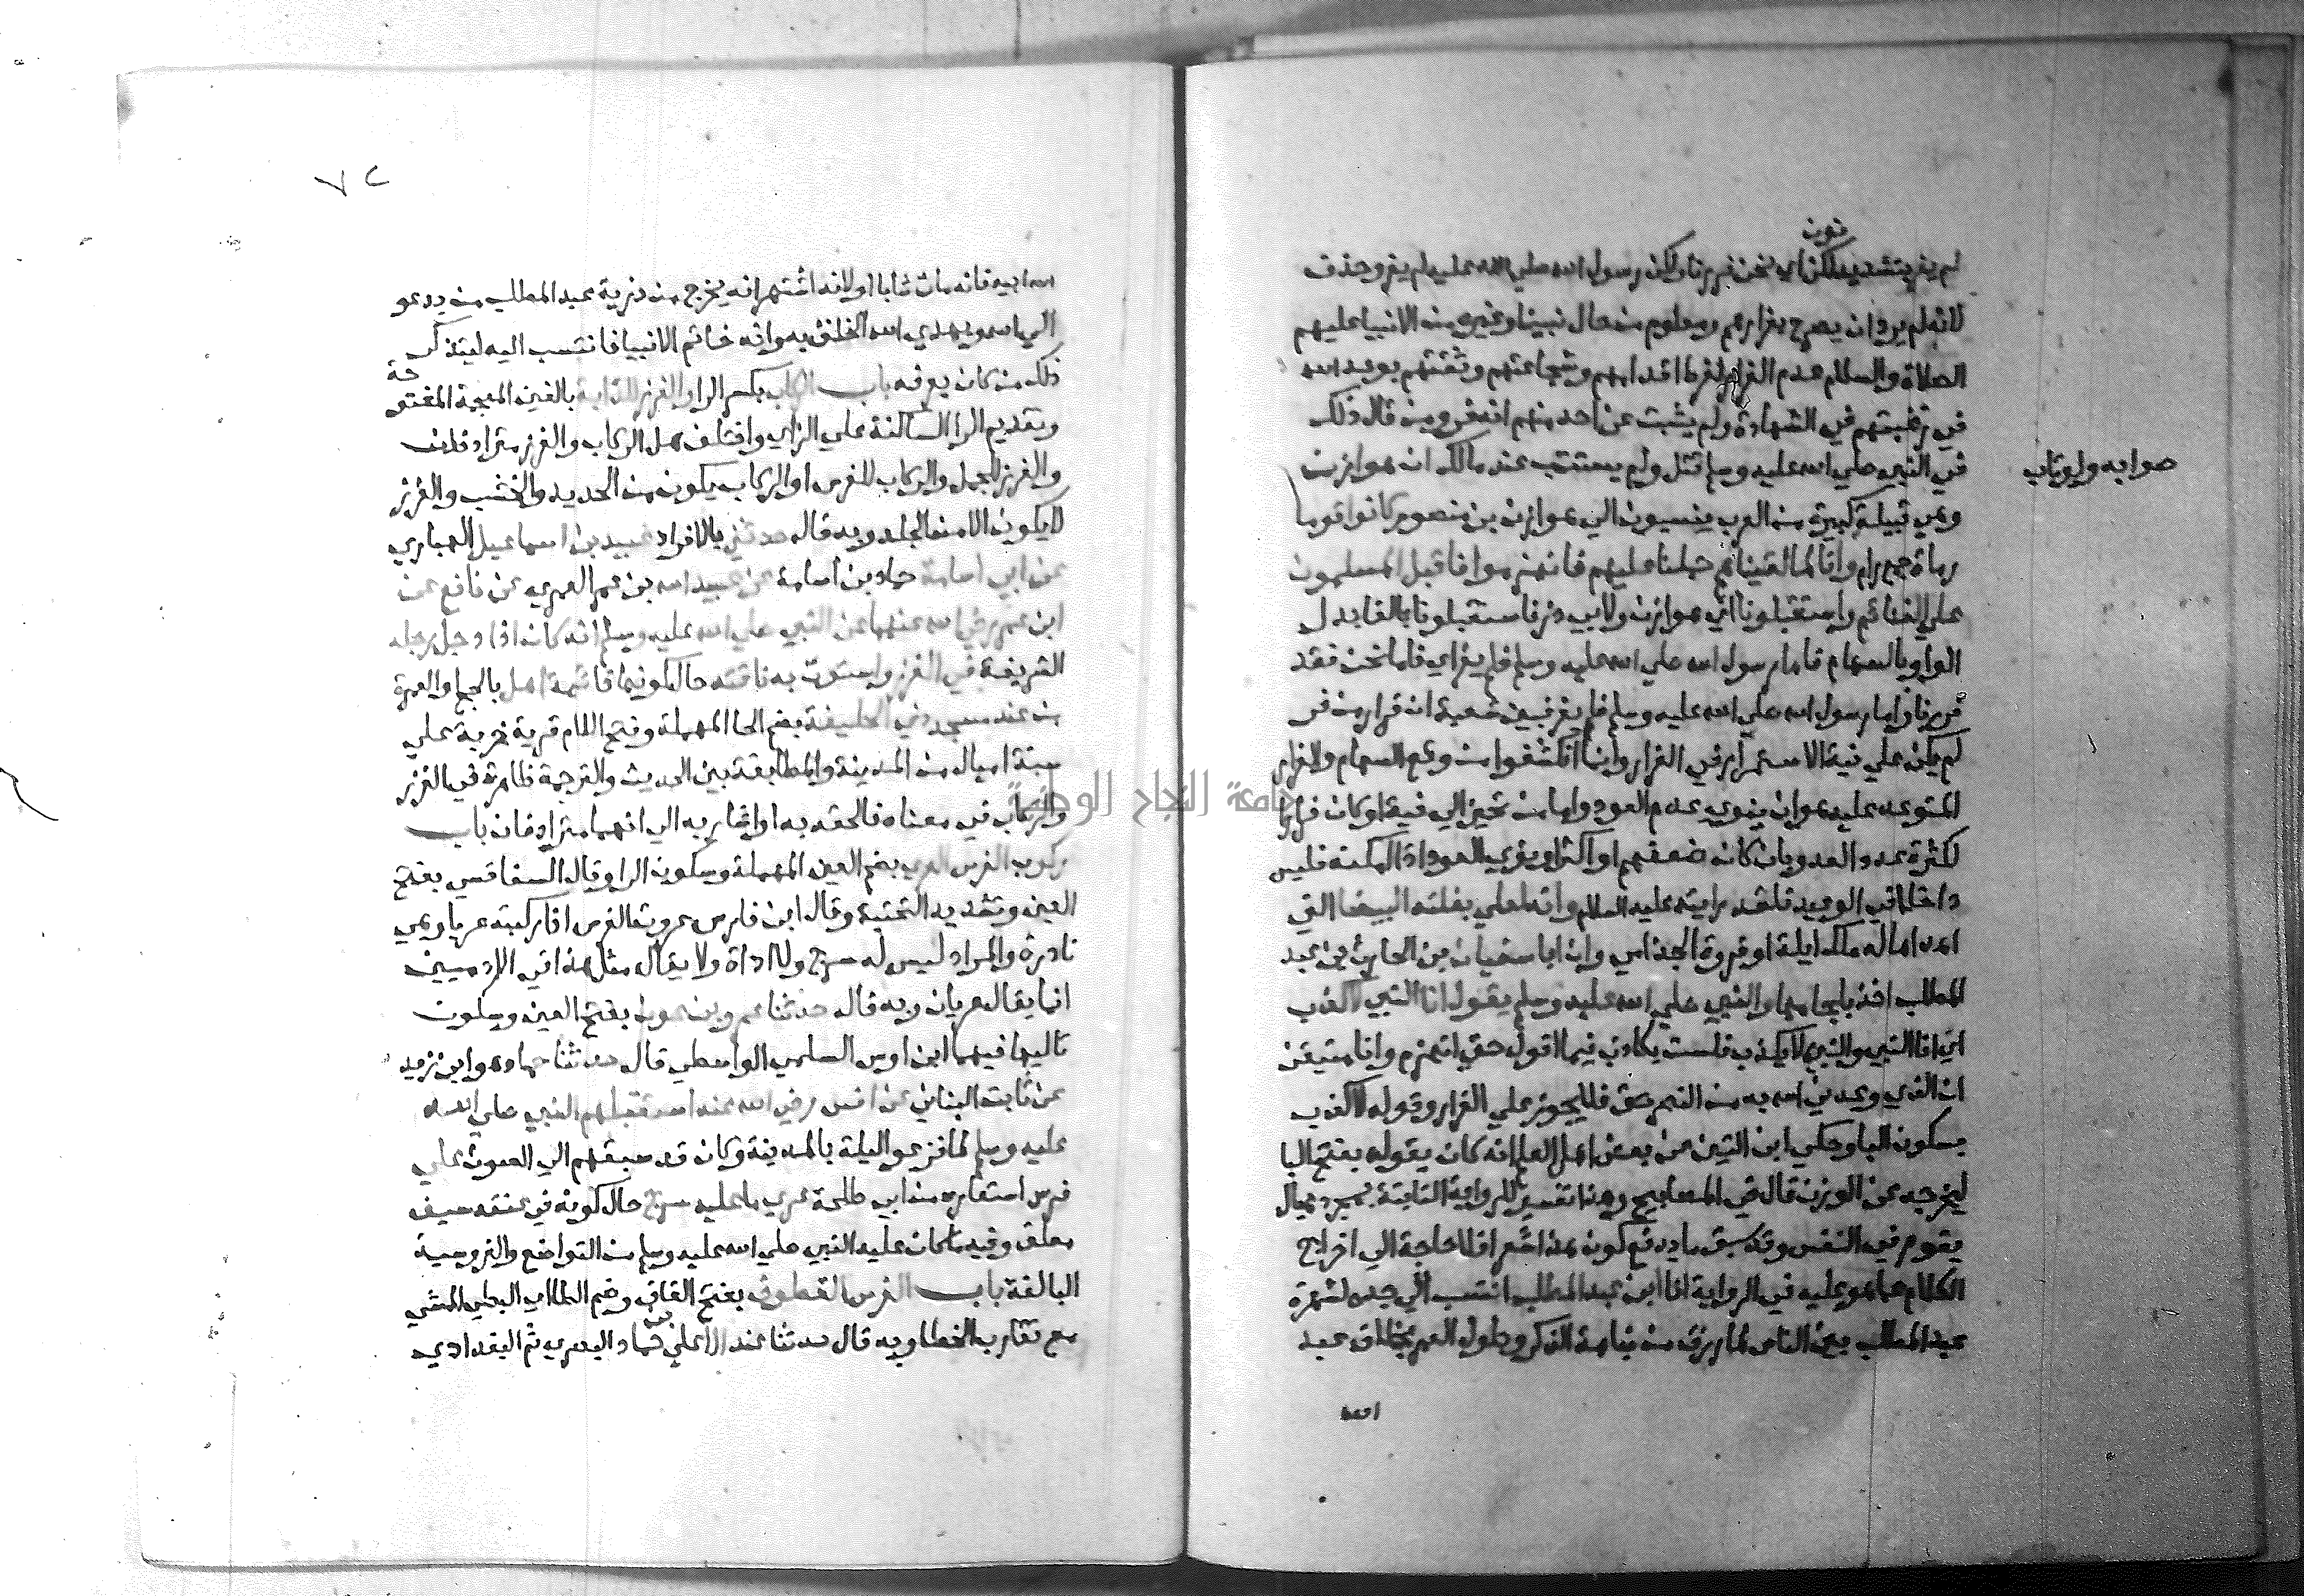 نون
لم يفر بتشديد لكن اي نحن فررنا ولكن رسول الله صلي الله عليه لم يفر وحذف
لانه لم يرد ان يصرح بفرارهم ومعلوم من حال نبينا وغيره من الانبيا عليهم
الصلاة والسلام عدم الفرار لفرط اقدامهم وشجاعتهم وثقتهم بوعد الله
في رغبتهم في الشهادة ولم يثبت عن احد منهم انه فر ومن قال ذلك
في النبي صلي الله عليه وسلم قتل ولم يستتب عند مالك ان هوازن
صوابه ولو تاب
وهي قبيلة كبيرة من العرب ينسبون الي هوازن بن منصور كانوا قوما
رماة جمع رام وانا لما لقيناهم حملنا عليهم فانهزموا فاقبل المسلمون
علي الغنائم واستقبلونا اي هوازن ولابي ذر فاستقبلونا بالفا بدل
الواو بالسهام فاما رسول الله صلي الله عليه وسلم فلم يفر اي فاما نحن فقد
فررنا واما رسول الله صلي الله عليه وسلم فلم يفر فبين شعبة ان فرار من فر
لم يكن علي نية الاستمرار في الفرار وانما انكشفوا من وقع السهام والفرار
المتوعد عليه هو ان ينوي عدم العود واما من تحيز الي فية او كان فراره
لكثرة عدد العدو بان كان ضعفهم او اكثر او ينوي العود اذا امكنه فليس
داخلا في الوعيد فلقد رايته عليه السلام وانه لعلي بغلته البيضا التي
اهداها له ملك ايلة او فروة الجذامي وان ابا سفيان بن الحارث بن عبد
المطلب اخذ بلجامها والنبي صلي الله عليه وسلم يقول انا النبي لا كذب
اي انا النبي والنبي لا يكذب فلست بكاذب فيما اقول حتي انهزم وانا متيقن
ان الذي وعدني الله به من النصر حق فلا يجوز علي الفرار وقوله لا كذب
بسكون البا وحكي ابن التين عن بعض اهل العلم انه كان يقوله بفتح البا
ليخرجه عن الوزن قال في المصابيح وهذا تغيير للرواية الثابتة بمجرد خيال
يقوم في النفس وقد سبق ما يدفع كون هذا شعرا فلا حاجة الي اخراج
الكلام عما هو عليه في الرواية انا ابن عبد المطلب انتسب الي جده لشهرة
عبد المطلب بين الناس لما رزق من نباهة الذكر وطول العمر بخلاف عبد
الله
٧٢
الله ابيه فانه مات شابا او لانه اشتهر انه يخرج من ذرية عبد المطلب من يدعو
الي الله ويهدي الله الخلق به وانه خاتم الانبيا فانتسب اليه ليتذكر
ذلك من كان يعرفه باب الركاب بكسر الرا والغرز للدابة بالغين المعجمة المفتوحة
وتقديم الرا الساكنة علي الزاي واختلف هل الركاب والغرز مترادفان
والغرز للجمل والركاب للفرس او الركاب يكون من الحديد والخشب والغرز
لا يكون الا من الجلد وبه قال حدثني بالافراد عبيد بن اسماعيل الهباري
عن ابي اسامة حماد بن اسامة عن عبيد الله بن عمر العمري عن نافع عن
ابن عمر رضي الله عنهما عن النبي صلي الله عليه وسلم انه كان اذا دخل رجله
الشريفة في الغرز واستوت به ناقته حال كونها قائمة اهل بالحج او العمرة
من عند مسجد ذي الحليفة بضم الحا المهملة وفتح اللام قرية خربة علي
ستة اميال من المدينة والمطابقة بين الحديث والترجمة ظاهرة في الغرز
والركاب في معناه فالحقه به او اشار به الي انهما مترادفان باب
ركوب الفرس العري بضم العين المهملة وسكون الرا وقال السفاقسي بفتح
العين وتشديد التحتية وقال ابن فارس عروت الفرس اذا ركبته عريا وهي
نادرة والمراد ليس له سرج ولا اداة ولا يقال مثل هذا في الادميين
انما يقال عريان وبه قال حدثنا عمرو بن عون بفتح العين وسكون
تاليها فيهما ابن اوس السلمي الواسطي قال حدثنا حماد هو ابن زيد
عن ثابت البناني عن انس رضي الله عنه استقبلهم النبي صلي الله
عليه وسلم لما فزعوا ليلة بالمدينة وكان قد سبقهم الي الصوت علي
فرس استعاره من ابي طلحة عري ما عليه سرج حال كونه في عنقه سيف
معلق وفيه ما كان عليه النبي صلي الله عليه وسلم من التواضع والفروسية
البالغة باب الفرس القطوف بفتح القاف وضم الطا اي البطي المشي
مع تقارب الخطا وبه قال حدثنا عبد الاعلي بن حماد البصري ثم البغدادي
جامعة النجاح الوطنية